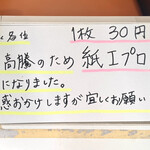 各位
1枚 30円
高騰のため 紙エプロ
になりました。
惑おかけしますが宜しくお願い